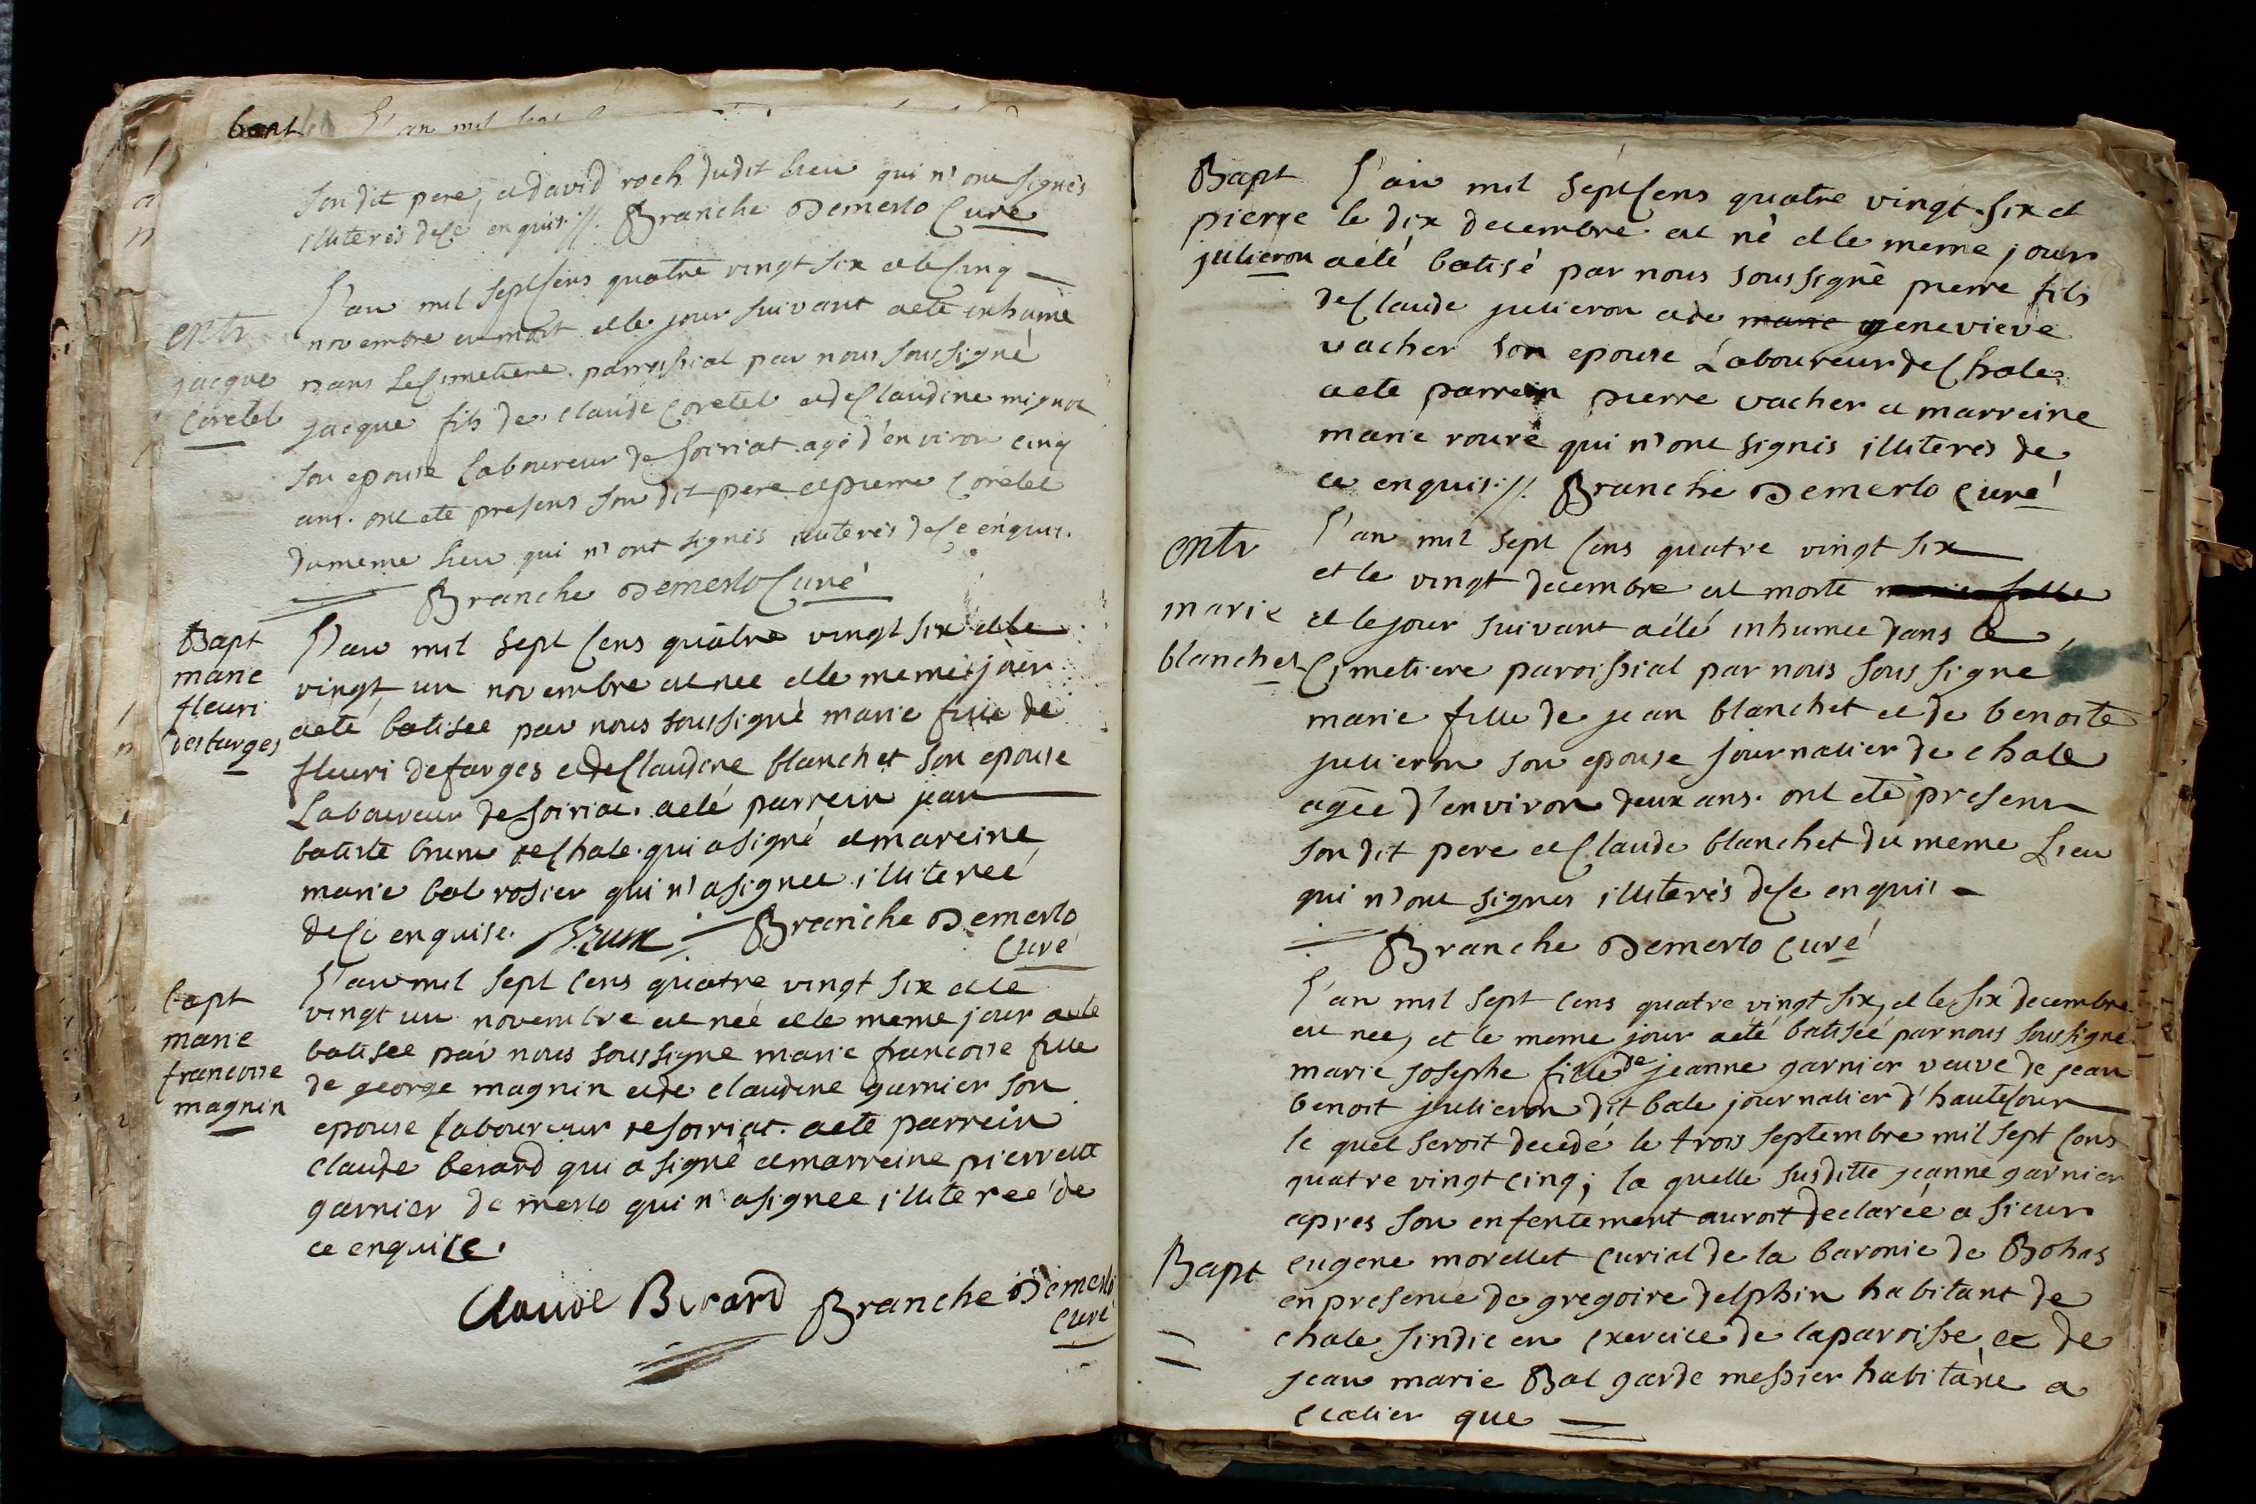 bapt L'an mil sept
son dit pere, et david roch dudit lieu qui n'ont signés
illiterés de ce enquis. //. Branche Demerlo Curé
L'an mil sept cens quatre vingt six et le cinq
entr
novembre est mort et le jour suivant a eté inhumé
jacque
dans le cimetiere parroissial par nous soussigné
coretel
jacque fils de claude coretel et de claudine mignot
son epouse laboureur de soiriat agé d'environ cinq
ans. ont eté presens son dit pere et pierre coretel
du meme lieu qui n'ont signés illiterés de ce enquis.
Branche Demerlo Curé
Bapt
L'an mil sept cens quatre vingt six et le
marie
vingt un novembre est nee et le meme jour
fleuri
a eté batisee par nous soussigné marie fille de
desfarges
fleuri desfarges et de claudine blanchet son epouse
Laboureur de soiriat. a eté parrein jean
batiste brun de chale. qui a signé et mareine
marie bal rosier qui n'a signee illiterée
de ce enquise. Brun Branche Demerlo
Curé
bapt
L'an mil sept cens quatre vingt six et le
marie
vingt un novembre est née et le meme jour a eté
francoise
batisee par nous soussigné marie francoise fille
magnin
de george magnin et de claudine garnier son
epouse laboureur de soiriat. a eté parrein
claude berard qui a signé et marreine pierrette
garnier de merlo qui n'a signee illiterée de
ce enquise.
Claude Berard Branche Demerlo
curé
Bapt
L'an mil sept cens quatre vingt six et
pierre
le dix decembre est né et le meme jour
julieron
a eté batisé par nous soussigné pierre fils
de claude julieron et de marie genevieve
vacher son epouse Laboureur de chale.
a eté parrein pierre vacher et marreine
marie roure qui n'ont signés illiterés de
ce enquis. //. Branche Demerlo curé
entr
L'an mil sept cens quatre vingt six
et le vingt decembre est morte marie fille
marie
et le jour suivant a été inhumee dans le
blanchet
Cimetiere paroissial par nous soussigné
marie fille de jean blanchet et de benoite
julieron son epouse journalier de chale
agée d'environ deux ans. ont eté presens
son dit pere et claude blanchet du meme Lieu
qui n'ont signés illiterés de ce enquis
Branche Demerlo curé
L'an mil sept cens quatre vingt six, et le six decembre
est nee, et le meme jour a eté batiseé par nous soussigné
marie josephe fille de jeanne garnier veuve de jean
benoit julieron dit bale journalier d'hautecour
le quel seroit decedé le trois septembre mil sept cens
quatre vingt cinq; la quelle susditte jeanne garnier
apres son enfentement auroit declarée a sieur
Bapt
eugene morellet curial de la baronie de Bohas
en presence de gregoire delphin habitant de
chale sindic en exercice de la paroisse et de
jean marie Bal garde messier habitant a
que